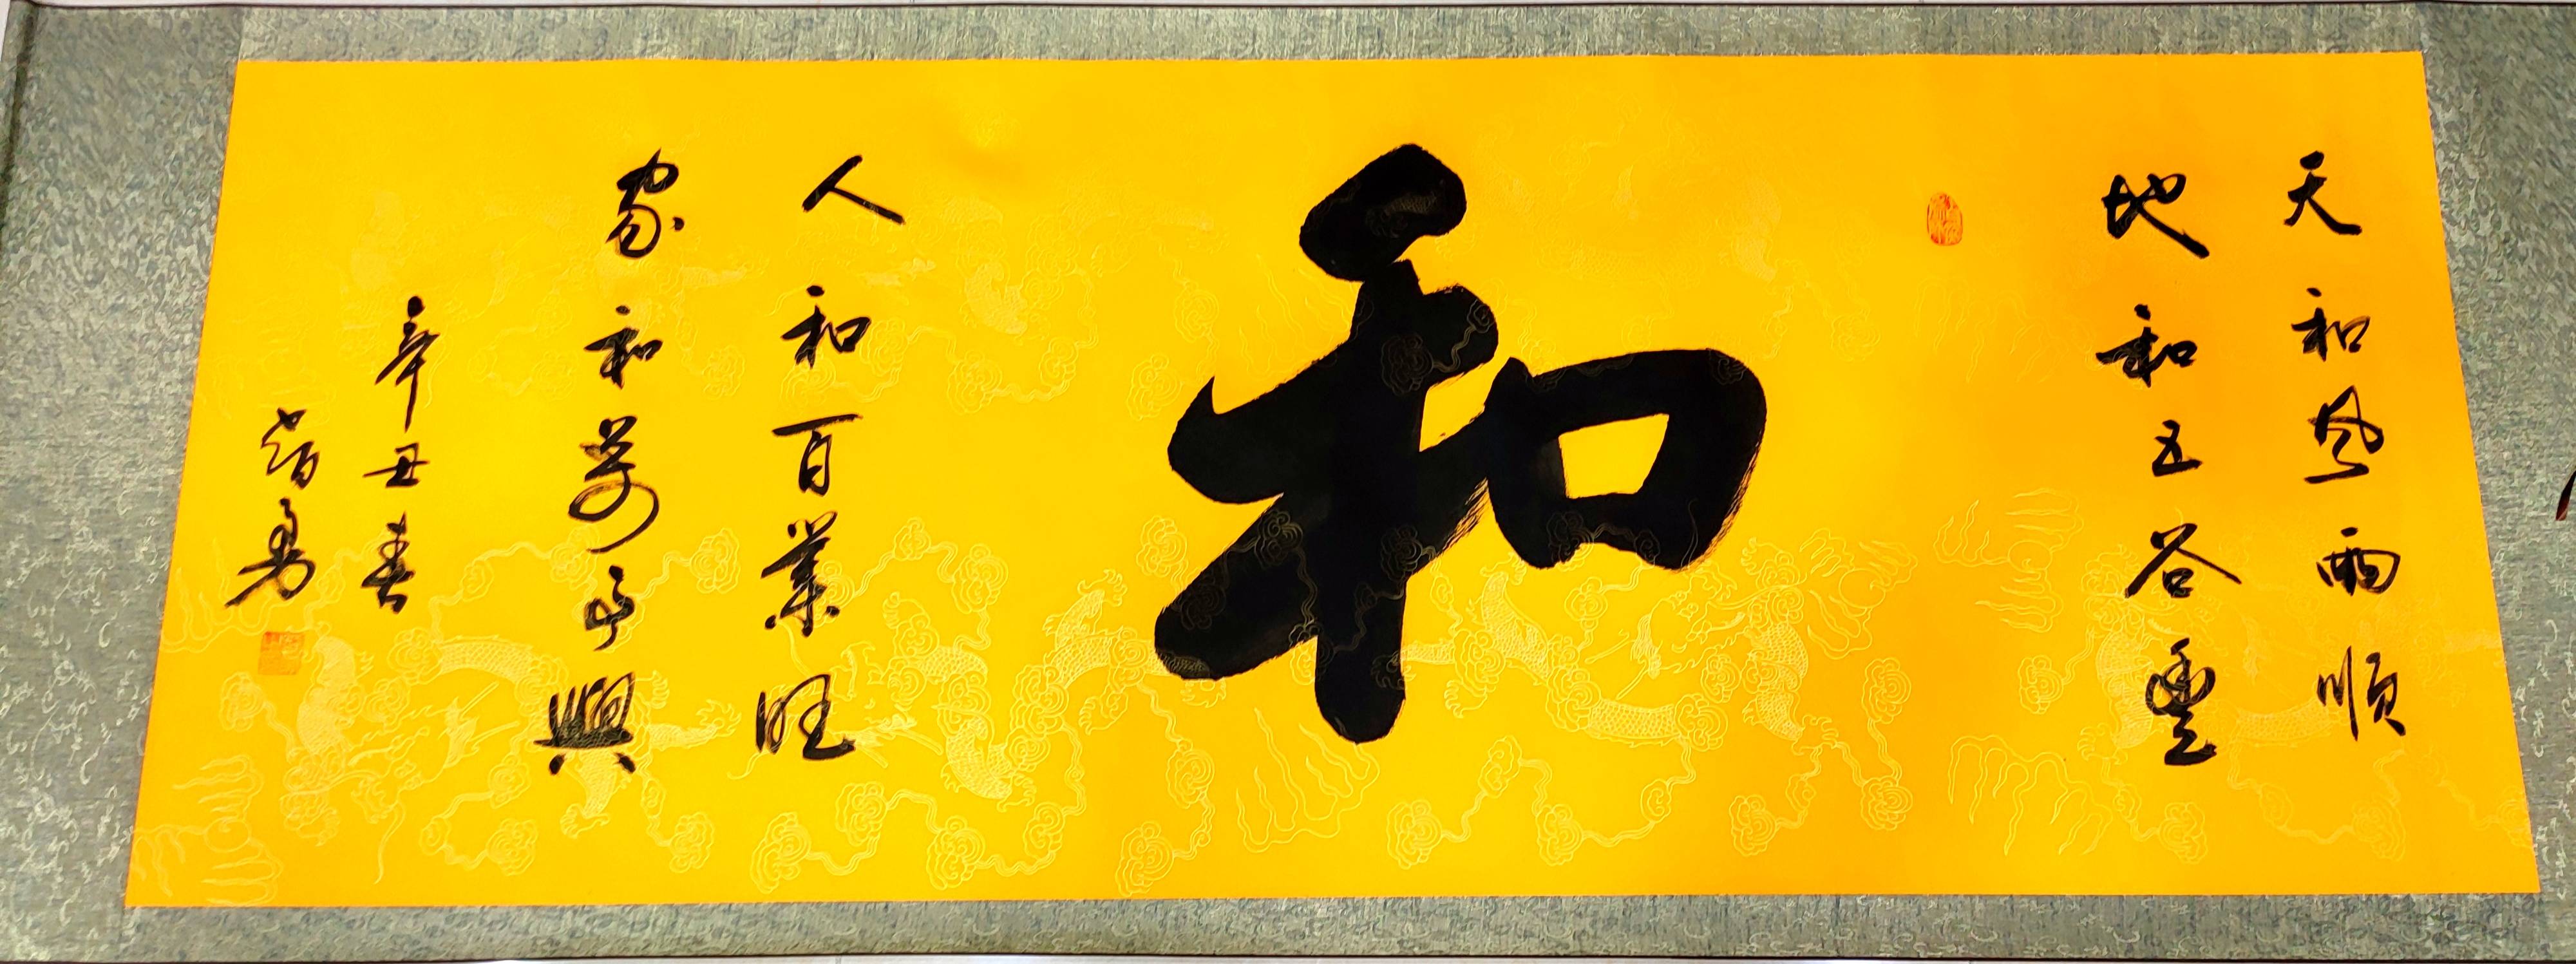 天和风雨順
地和五谷豐
和
人和百業旺
家和萬事興
辛丑春